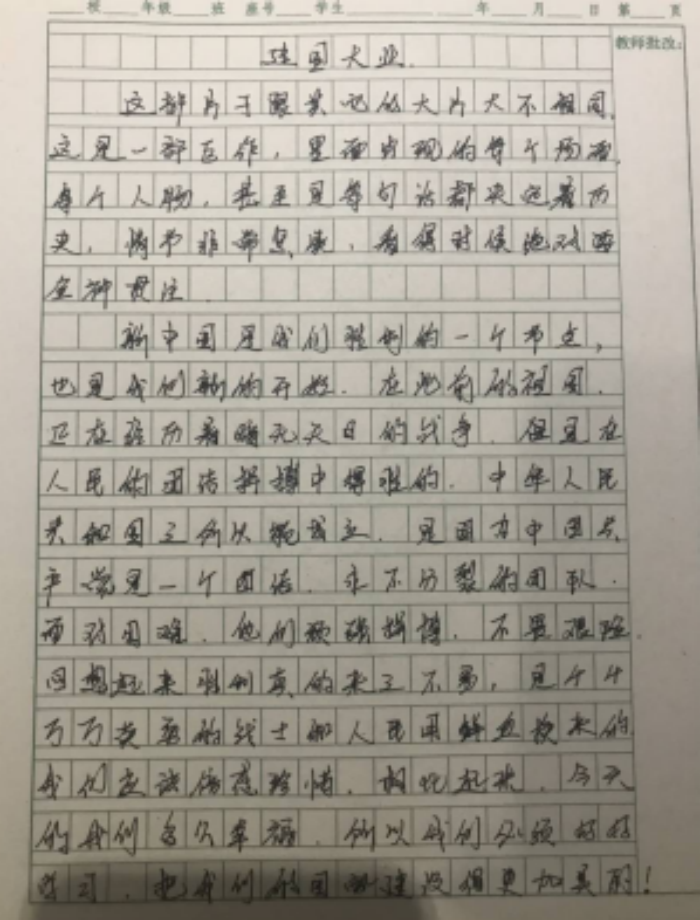 校 年级 班 座号 学生 年 月 日 第 页
教师批改：
建国大业.
这部片子跟其他的大片大不相同,
这是一部巨作, 里面出现的每个场面,
每个人物, 甚至是每句话都夹应着历
史, 情节非常紧凑, 看得时候绝对要
全神贯注.
新中国是我们胜利的一个节点,
也是我们新的开始. 在此前的祖国,
正在经历着暗无天日的战争. 但是在
人民的团结拼搏中得胜的. 中华人民
共和国之所以能成立. 是因有中国共
产党是一个团结, 永不分裂的团队.
面对困难, 他们顽强拼搏, 不畏艰险.
回想起来胜利真的来之不易, 是千千
万万英勇的战士和人民用鲜血换来的
我们应该倍感珍惜. 相比起来, 今天
的我们多么幸福. 所以我们必须好好
学习, 把我们的国家建设得更加美丽!